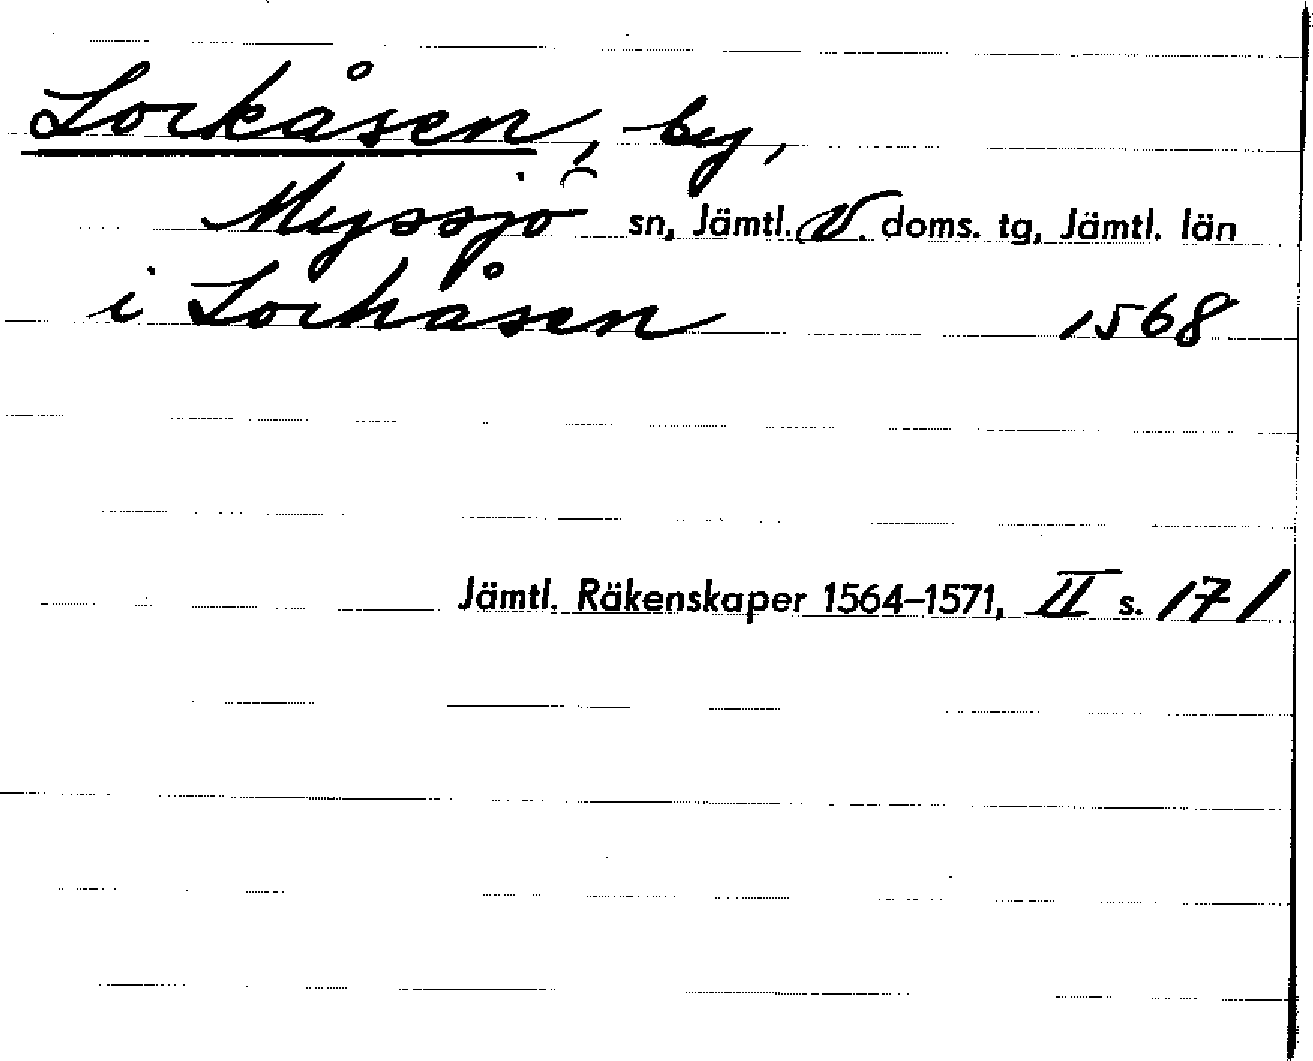 Lorkåsen, by,
Myssjö sn, Jämtl. V. doms. tg, Jämtl. län
i Lorkåsen 1568
Jämtl. Räkenskaper 1564–1571, II s. 171